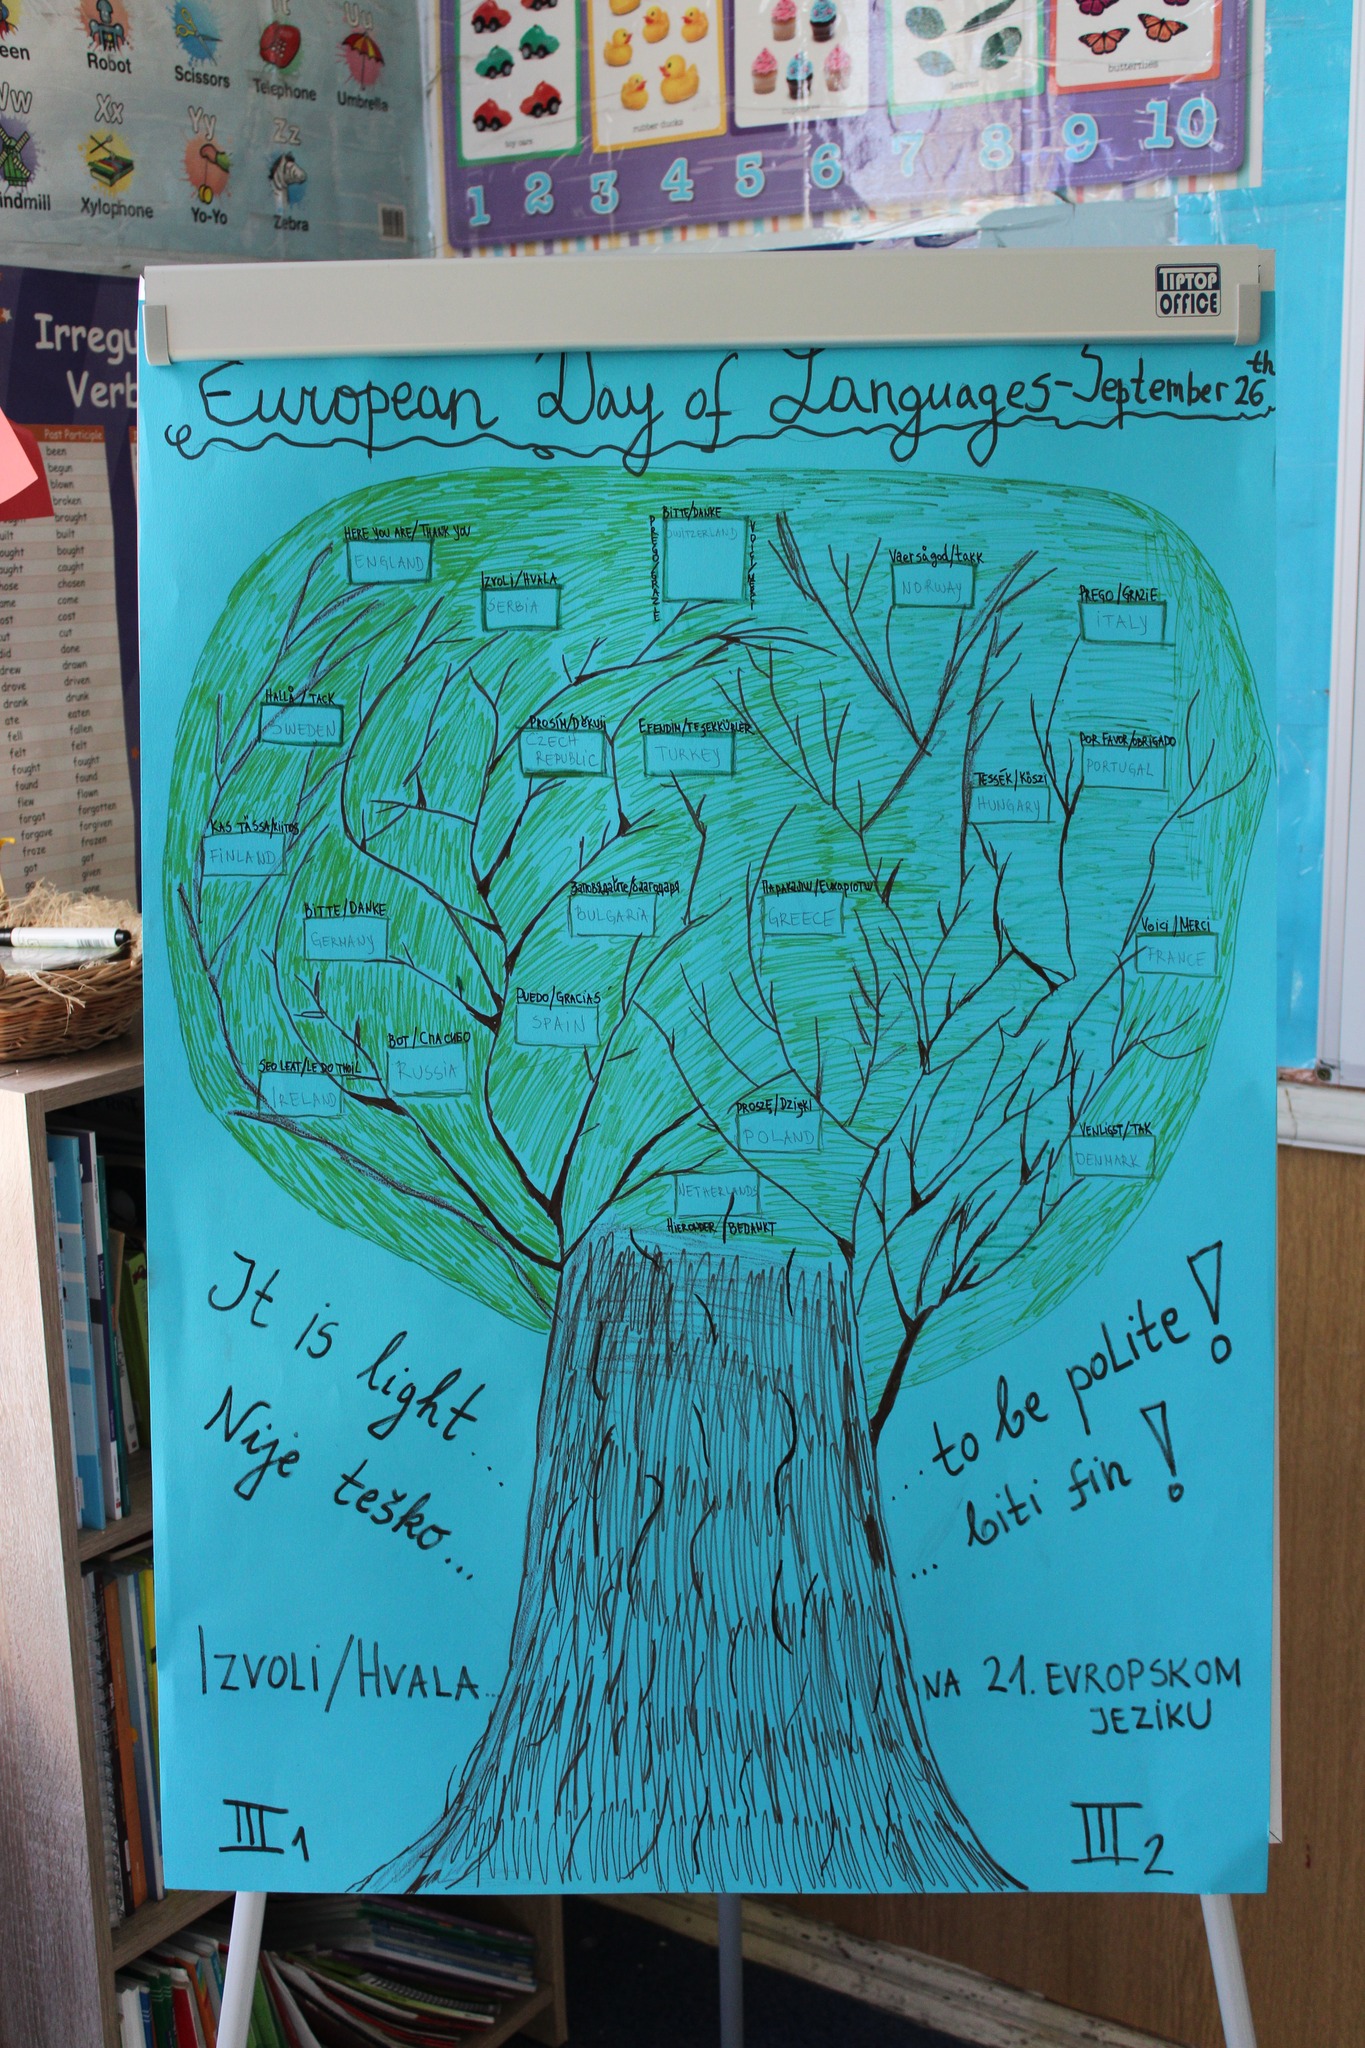 Robot
Scissors
Telephone
Umbrella
Xx
Yy
Zz
Xylophone
Yo-Yo
Zebra
toy cars
rubber ducks
butterflies
1 2 3 4 5 6 7 8 9 10
TIPTOP
OFFICE
Past Participle
been
begun
blown
broken
brought
built
bought
caught
chosen
come
cost
cut
done
drawn
driven
drunk
eaten
fallen
felt
fought
found
flown
forgotten
forgiven
frozen
got
given
European Day of Languages - September 26th
HERE YOU ARE/THANK YOU
ENGLAND
IZVOLI/HVALA
SERBIA
BITTE/DANKE
PREGO/GRAZIE
SWITZERLAND
Vaersågod/takk
NORWAY
PREGO/GRAZIE
ITALY
HALLÅ/TACK
SWEDEN
PROSÍM/DĚKUJI
CZECH
REPUBLIC
EFENDIM/TEŞEKKÜRLER
TURKEY
POR FAVOR/OBRIGADO
PORTUGAL
TESSÉK/KÖSZI
HUNGARY
KAS TÄSSÄ/KIITOS
FINLAND
BITTE/DANKE
GERMANY
Заповядайте/благодаря
BULGARIA
GREECE
VOICI/MERCI
FRANCE
PUEDO/GRACIAS
SPAIN
ВОТ/СПАСИБО
RUSSIA
SEO LEAT/LE DO THOIL
IRELAND
PROSZĘ/DZIĘKI
POLAND
VENLIGST/TAK
DENMARK
NETHERLANDS
HIERONDER/BEDANKT
It is light...
...to be polite!
Nije teško...
...biti fin!
IZVOLI/HVALA...
NA 21. EVROPSKOM
JEZIKU
III1
III2